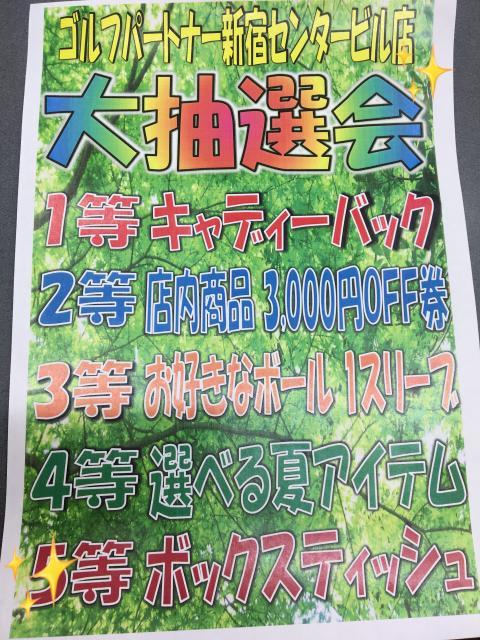 ゴルフパートナー新宿センタービル店
大抽選会
1等 キャディーバック
2等 店内商品 3,000円OFF券
3等 お好きなボール 1スリーブ
4等 選べる夏アイテム
5等 ボックスティッシュ